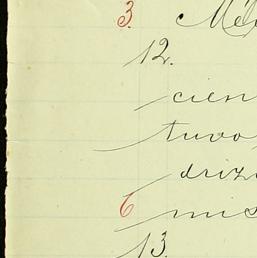 3. Mél
12.
cien
tuvo
driz
6 mis
13.